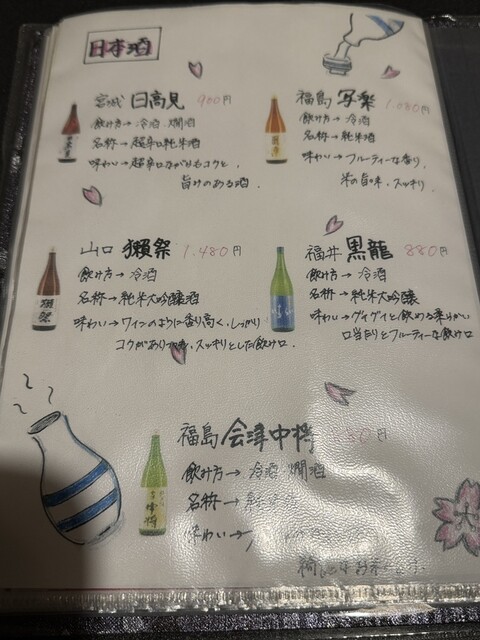 日本酒
宮城 日高見 900円
飲み方→冷酒 燗酒
名称→超辛口純米酒
味わい→超辛口ながらもコクと、
旨みのある酒。
福島 写楽 1,080円
飲み方→冷酒
名称→純米酒
味わい→フルーティーな香り、
米の旨味、スッキリ。
山口 獺祭 1,480円
飲み方→冷酒
名称→純米大吟醸酒
味わい→ワインのように香り高く、しっかり
コクがありつつ、スッキリとした飲み口。
獺祭
福井 黒龍 880円
飲み方→冷酒
名称→純米大吟醸
味わい→グイグイと飲める柔らかい
口当たりとフルーティーな飲み口
福島 会津中将
飲み方→冷酒 燗酒
名称→
味わい→
中将